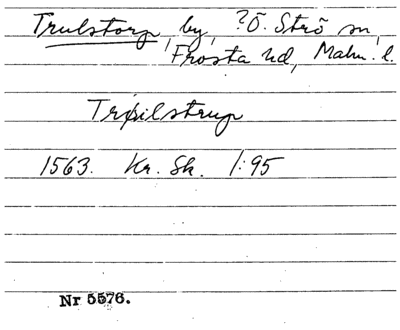 Trulstorp, by, ?Ö. Strö sn,
Frosta hd, Malm. l.
Trulstrup
1563. Kr. Sk. 1:95
Nr 5576.